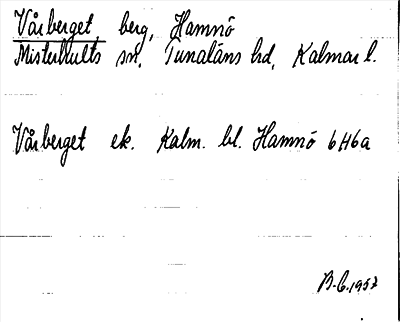 Vårberget, berg, Hamnö
Misterhults sn, Tunaläns hd, Kalmar l.
Vårberget ek. Kalm. bl. Hamnö 6H6a
B-G. 1957